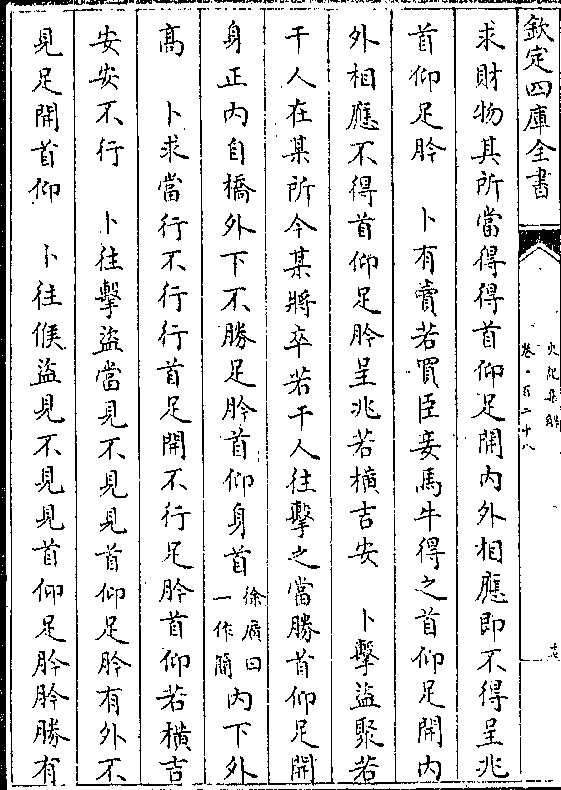 欽定四庫全書
史記集解
卷一百二十八
求財物其所當得得首仰足開内外相應即不得呈兆
首仰足肣　卜有賣若買臣妾馬牛得之首仰足開内
外相應不得首仰足肣呈兆若橫吉安　卜擊盜聚若
干人在某所今某將卒若干人往擊之當勝首仰足開
身正内自橋外下不勝足肣首仰身首徐廣曰一作簡内下外
高　卜求當行不行行首足開不行足肣首仰若橫吉
安安不行　卜往擊盜當見不見見首仰足肣有外不
見足開首仰　卜往候盜見不見見首仰足肣肣勝有